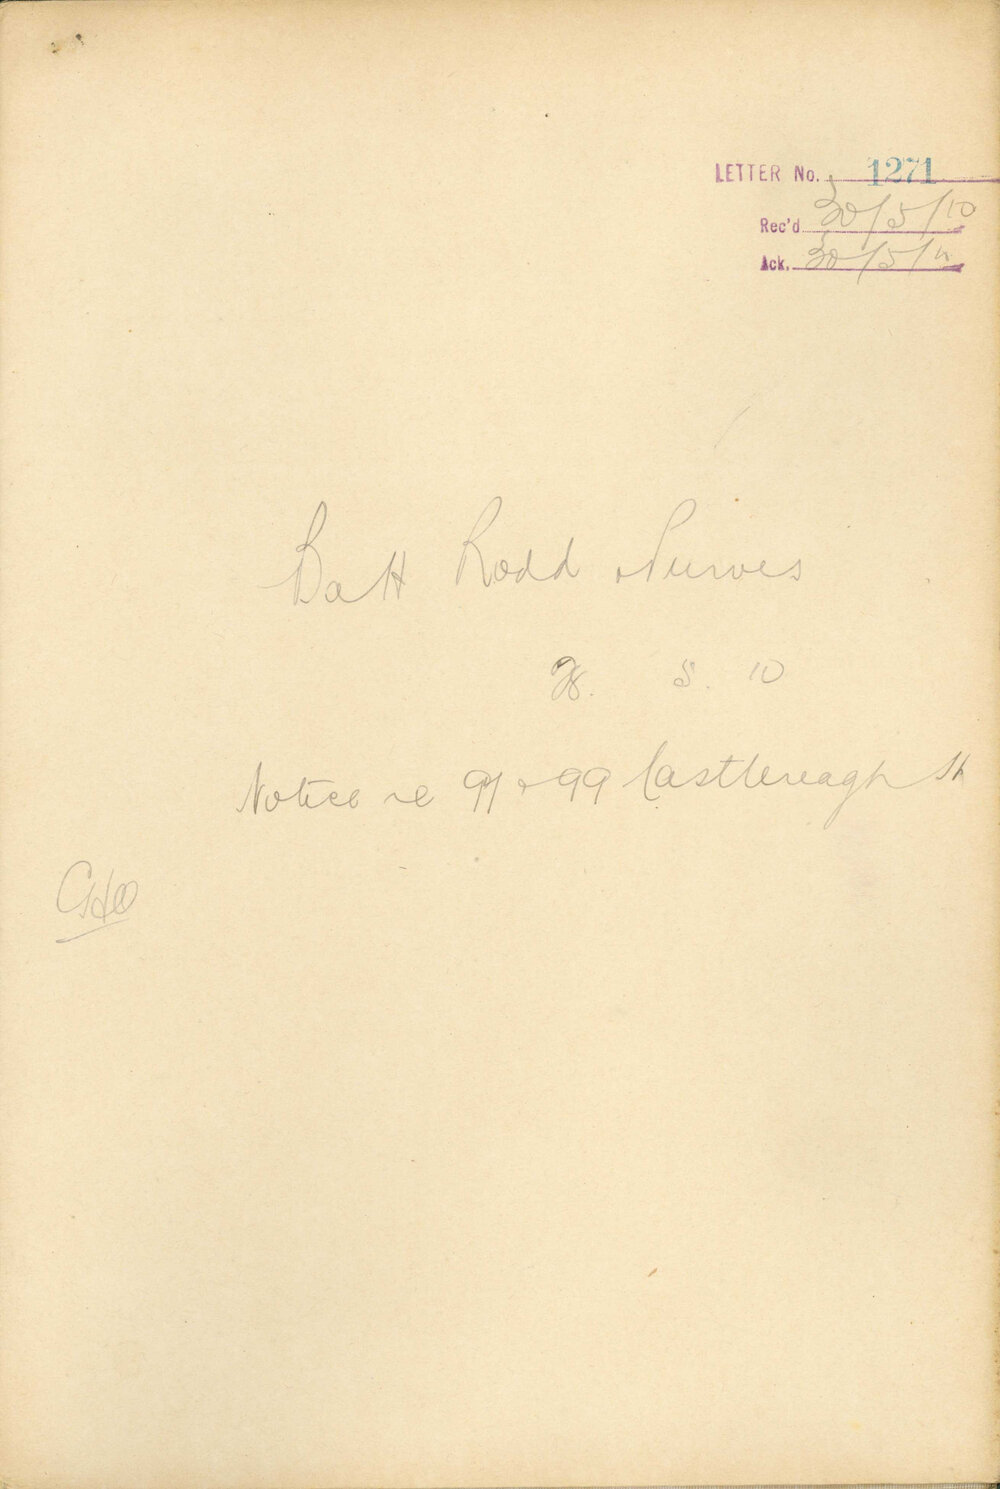 LETTER No. 1271
Rec'd 30/5/10
Ack. 30/5/10
Batt Rodd & Purves
28. 5. 10
Notice re 97 & 99 Castlereagh St